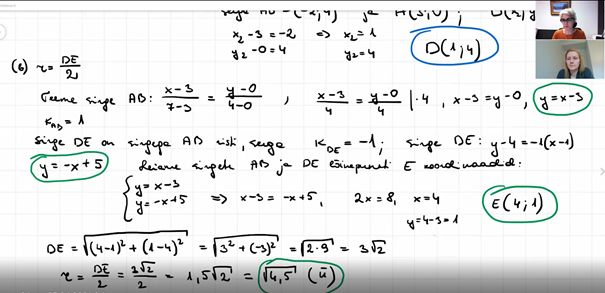 x₂ -3 = -2 ⇒ x₂ = 1
y₂ -0 = 4 y₂ = 4
D(1;4)
(6) r = DE/2
Teeme sirge AB: (x-3)/(7-3) = (y-0)/(4-0) , (x-3)/4 = (y-0)/4 | ·4 , x-3 = y-0, y = x-3
k_AB = 1
Sirge DE on sirgega AB risti, seega k_DE = -1; sirge DE: y-4 = -1(x-1)
y = -x+5 Leiame sirgete AB ja DE lõikepunkti E koordinaadid:
{ y = x-3
y = -x+5 ⇒ x-3 = -x+5, 2x = 8, x = 4
y = 4-3 = 1
E(4;1)
DE = √((4-1)² + (1-4)²) = √(3² + (-3)²) = √(2·9) = 3√2
r = DE/2 = 3√2/2 = 1,5√2 = √4,5 (ü)